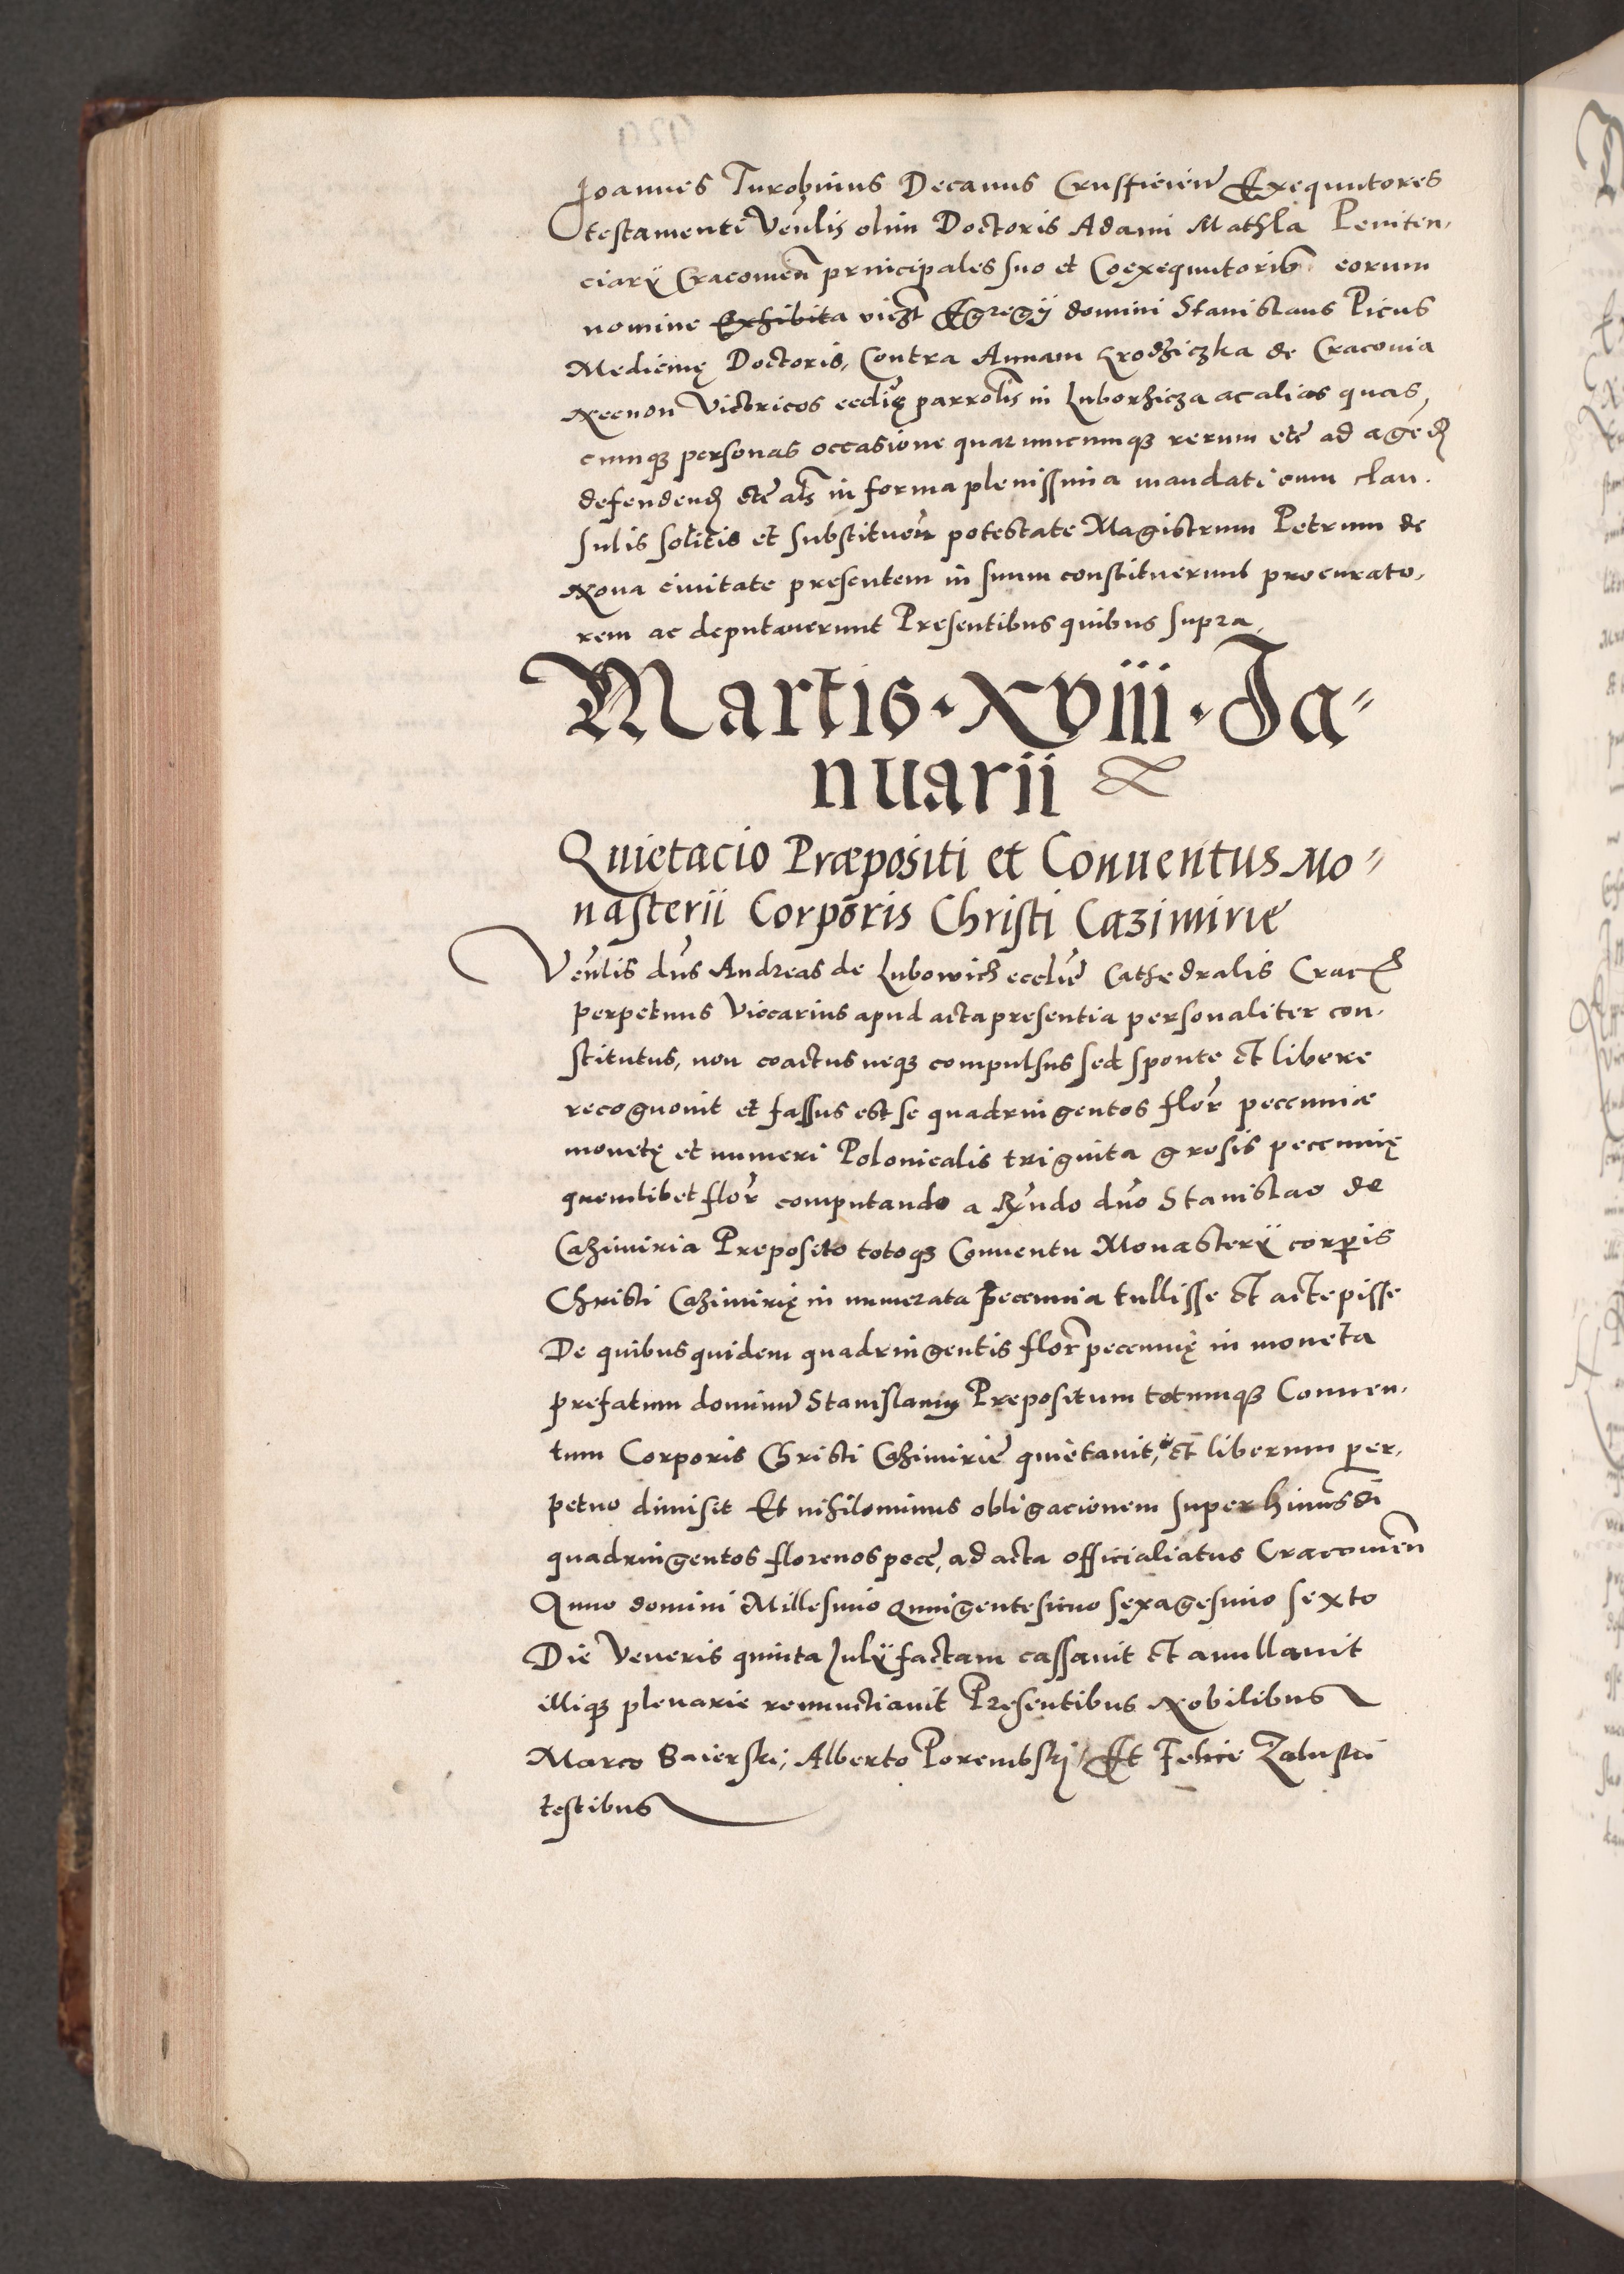 Joannes Turobinus Decanus Crusficien Exequutores
testamenti Venlis olim Doctoris Adami Mathla Peniten,
ciarÿ Cracouien principales suo et Coexequutorib eorum
nomine Exhibita Egregÿ domini Stanislaus Picus
Medicinę Doctoris, Contra Annam Grodziczka de Cracouia
Necnon Victricos ecclię parrolis in Luborzicza ac alias quas,
cunq personas occasione quarumcumq rerum etc ad agēd
defendend etc als in forma plenissima mandati cum clau.
sulis solitis et substituen potestate Magistrum Petrum de
Noua ciuitate presentem in suum constituerunt procurato,
rem ac deputauerunt Presentibus quibus supra,
Martis · XVIII · Ja=
nuarii
Quietacio Præpositi et Conuentus Mo=
nasterii Corporis Christi Cazimirie
Venlis dns Andreas de Lubowich ecclie Cathedralis Crac
perpetuus Viccarius apud acta presentia personaliter con,
stitutus, non coactus neq compulsus sed sponte et libere
recognouit et fassus est se quadringentos flor peccuniæ
monetę et numeri Polonicalis triginta grosis peccunię
quemlibet flor computando a Rndo dno Stanislao de
Cazimiria Preposito totoq Conuentu Monasterÿ corpris
Christi Cazimirię in numerata peccunia tullisse et accepisse
De quibus quidem quadringentis flor peccunię in moneta
prefatum dominū Stanislaum Prepositum totumq Conuen,
tum Corporis Christi Cazimirie quietauit, et liberum per,
petuo dimisit Et nihilominus obligacionem super huiusdi
quadringentos florenos pecc, ad acta officialiatus Cracouien
Anno domini Millesimo Quingentesimo sexagesimo sexto
Die Veneris quinta Julÿ factam cassauit et anullauit
illiq plenarie renunctiauit Presentibus Nobilibus
Marco Baierski, Alberto Porembskj, Et Felice Zaluski
testibus